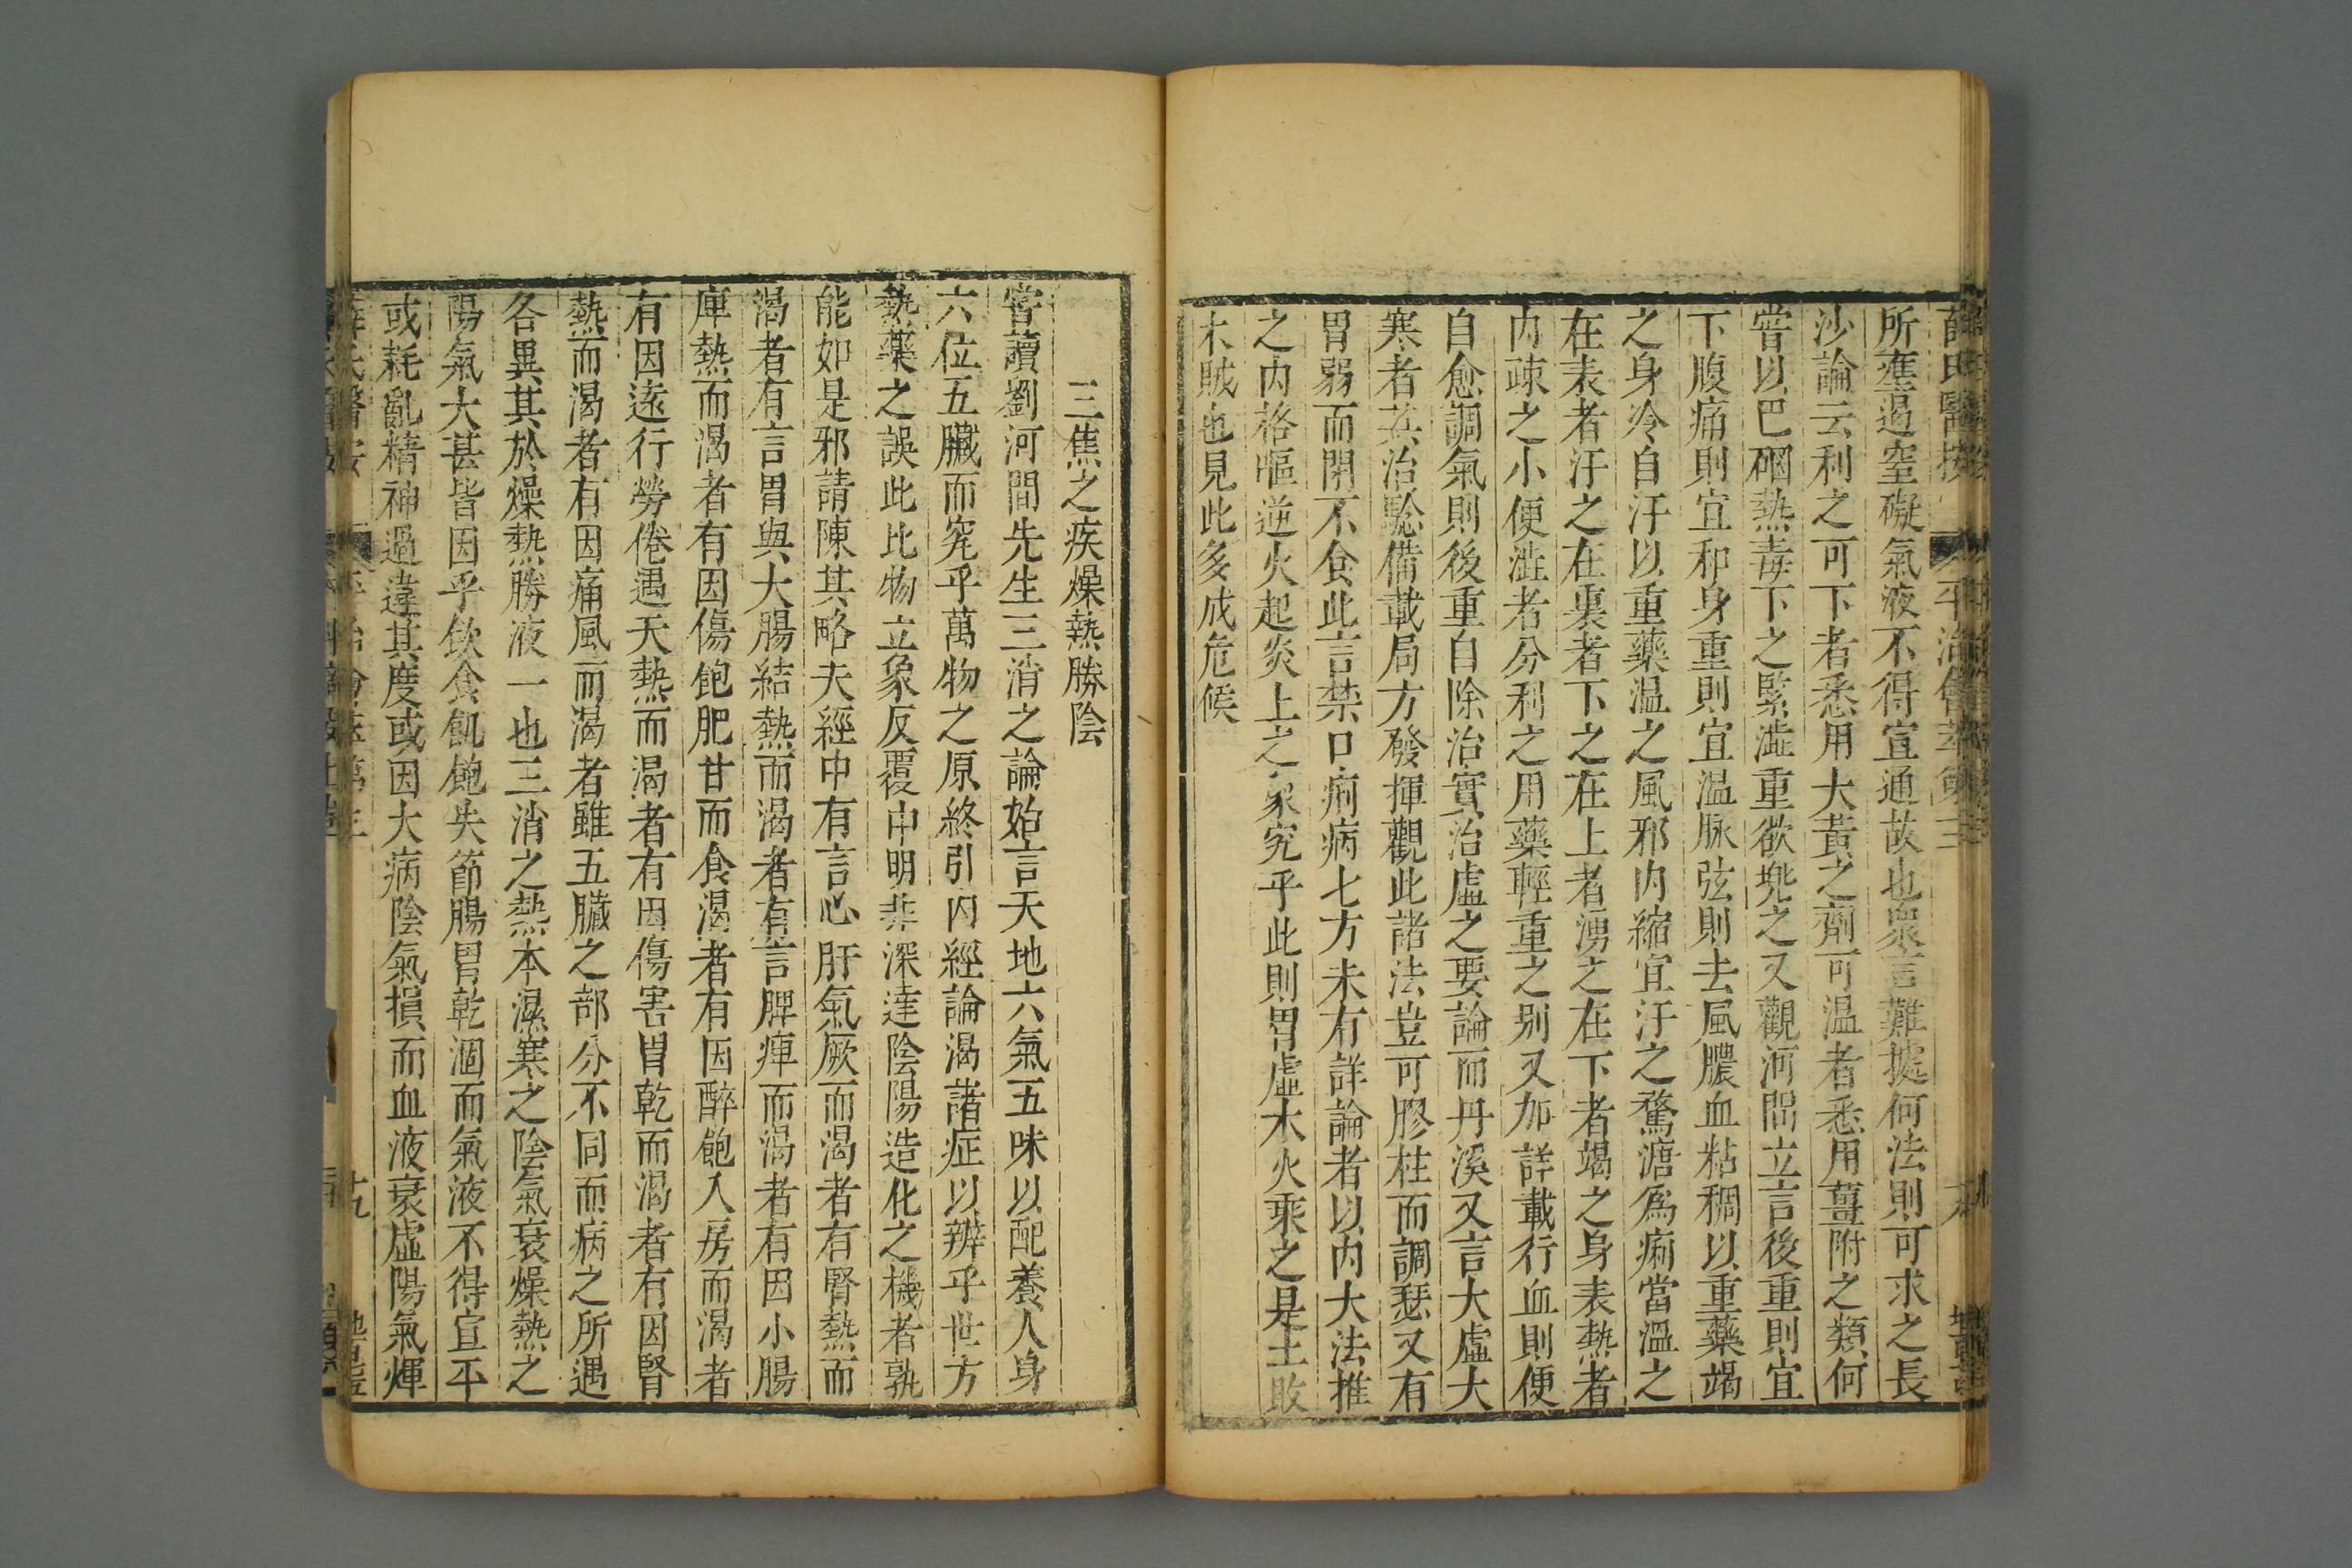 薛氏醫按
平治會萃卷三
所壅遏窒礙氣液不得宣通故也眾言難據何法則可求之長
沙論云利之可下者悉用大黃之劑可溫者悉用薑附之類何
嘗以巴硇熱毒下之緊澁重欲兠之又觀河間立言後重則宜
下腹痛則宜和身重則宜溫脉弦則去風膿血粘稠以重藥竭
之身冷自汗以重藥溫之風邪內縮宜汗之鶩溏為痢當溫之
在表者汗之在裏者下之在上者湧之在下者竭之身表熱者
內疎之小便澁者分利之用藥輕重之别又加詳載行血則便
自愈調氣則後重自除治實治虛之要論而丹溪又言大虛大
寒者其治驗備載局方發揮觀此諸法豈可膠柱而調瑟又有
胃弱而閉不食此言禁口痢病七方未有詳論者以內大法推
之內格嘔逆火起炎上之象究乎此則胃虛木火乘之是土敗
木賊也見此多成危候
三焦之疾燥熱勝陰
嘗讀劉河間先生三消之論始言天地六氣五味以配養人身
六位五臟而究乎萬物之原終引內經論渴諸症以辨乎世方
熱藥之誤此比物立象反覆中明非深達陰陽造化之機者孰
能如是邪請陳其略夫經中有言心肝氣厥而渴者有腎熱而
渴者有言胃與大腸結熱而渴者有言脾痺而渴者有因小腸
庳熱而渴者有因傷飽肥甘而食渴者有因醉飽入房而渴者
有因遠行勞倦遇天熱而渴者有因傷害胃乾而渴者有因腎
熱而渴者有因痛風而渴者雖五臟之部分不同而病之所遇
各異其於燥熱勝液一也三消之熱本濕寒之陰氣衰燥熱之
陽氣大甚皆因乎飲食飢飽失節腸胃乾涸而氣液不得宣平
或耗亂精神過違其度或因大病陰氣損而血液衰虛陽氣煇
十九